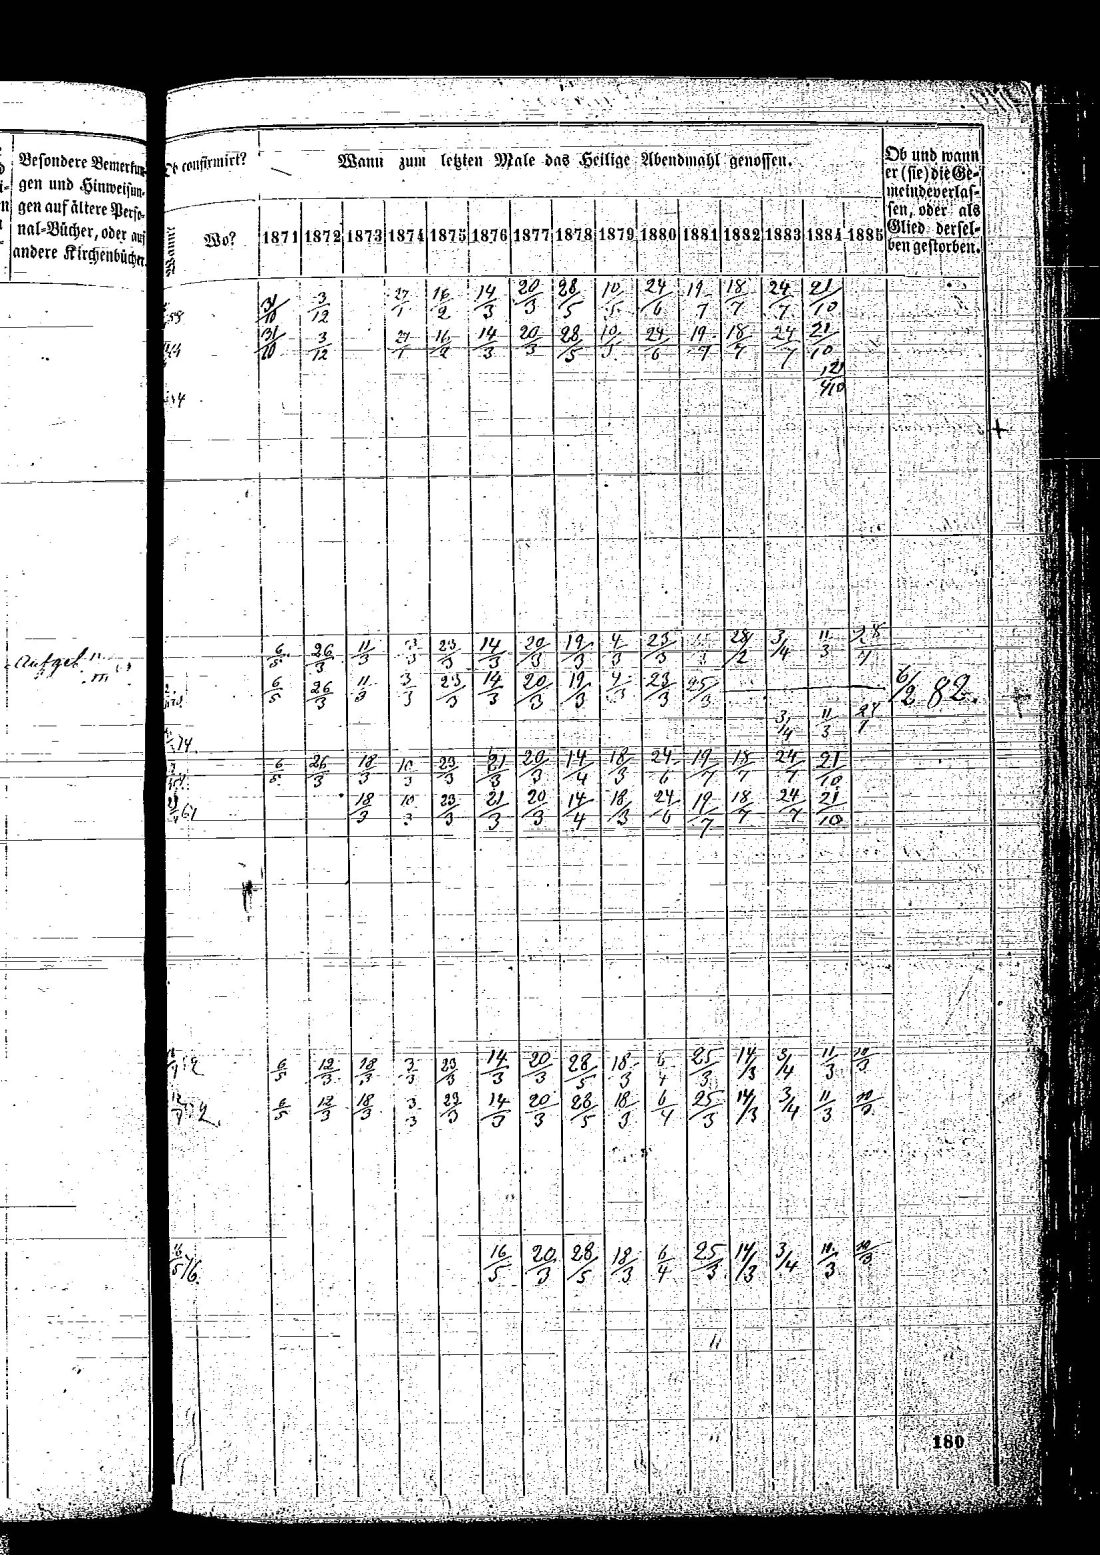 Besondere Bemerkun-
gen und Hinweisun-
gen auf ältere Perso-
nal-Bücher, oder auf
andere Kirchenbücher.
Ob confirmirt?
Wann?
Wo?
Wann zum letzten Male das Heilige Abendmahl genossen.
1871 1872 1873 1874 1875 1876 1877 1878 1879 1880 1881 1882 1883 1884 1885
Ob und wann
er (sie) die Ge-
meinde verlas-
sen, oder als
Glied dersel-
ben gestorben.
31/10 3/12 27/1 16/2 14/3 20/3 28/5 10/5 24/6 19/7 18/7 24/7 21/10
31/10 3/12 27/1 16/2 14/3 20/3 28/5 24/6 19/7 18/7 24/7 21/10
6/5 26/3 11/3 3/3 23/3 14/3 20/3 19/3 4/3 23/3 28/2 3/4 11/3
6/5 26/3 11/3 3/3 23/3 14/3 20/3 19/3 4/3 23/3 25/3 6/2 82.
3/4 11/3
6/5 26/3 18/3 10/3 23/3 21/3 20/3 14/4 18/3 24/6 19/7 18/7 24/7 21/10
18/3 10/3 23/3 21/3 20/3 14/4 18/3 24/6 19/7 18/7 24/7 21/10
6/5 12/3 18/3 3/3 23/3 14/3 20/3 28/5 18/3 6/4 25/3 14/3 3/4 11/3
6/5 12/3 18/3 3/3 23/3 14/3 20/3 28/5 18/3 6/4 25/3 14/3 3/4 11/3
16/5 20/3 28/5 18/3 6/4 25/3 14/3 3/4
180